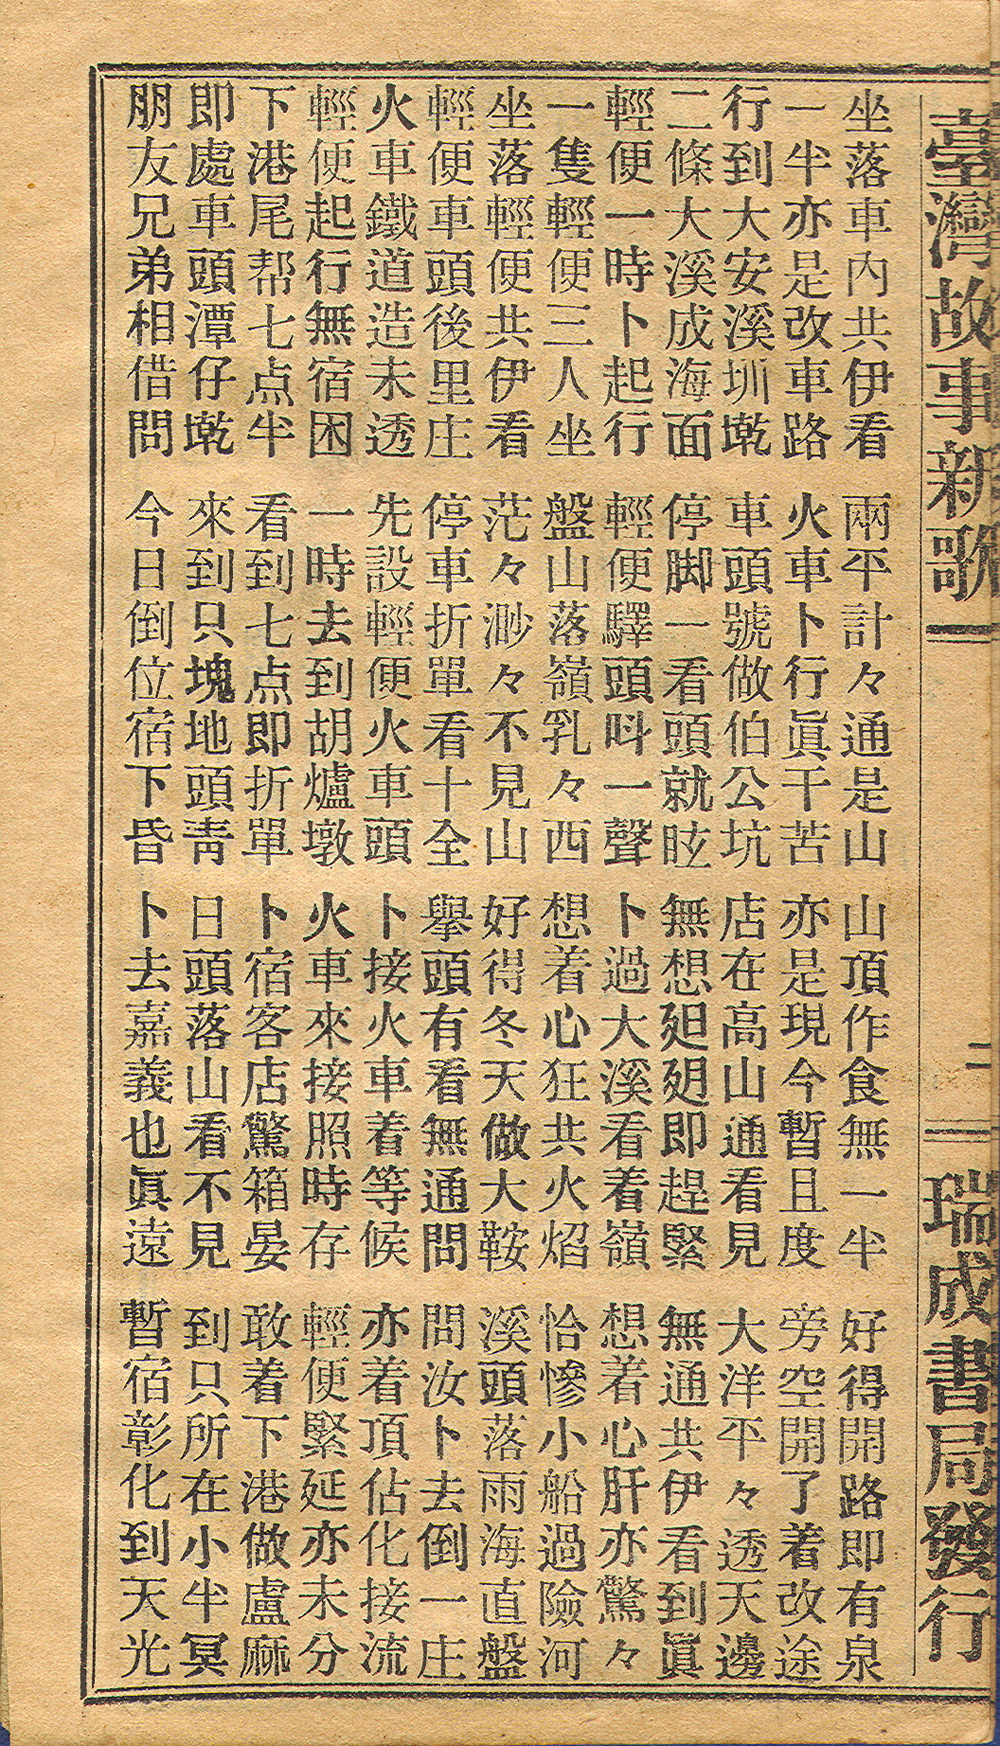 臺灣故事新歌一 二 瑞成書局發行
坐落車內共伊看 兩平計々通是山 山頂作食無一半 好得開路即有泉
一半亦是改車路 火車卜行眞干苦 亦是現今暫且度 旁空開了着改途
行到大安溪圳墘 車頭號做伯公坑 店在高山通看見 大洋平々透天邊
二條大溪成海面 停脚一看頭就眩 無想廻廻即趕緊 無通共伊看到眞
輕便一時卜起行 輕便驛頭呌一聲 卜過大溪看着嶺 想着心肝亦驚々
一隻輕便三人坐 盤山落嶺乳々西 想着心狂共火熖 恰慘小船過險河
坐落輕便共伊看 茫々渺々不見山 好得冬天做大鞍 溪頭落雨海直盤
輕便車頭後里庄 停車折單看十全 擧頭有看無通問 問汝卜去倒一庄
火車鐵道造未透 先設輕便火車頭 卜接火車着等候 亦着頂佔化接流
輕便起行無宿困 一時去到胡爐墩 火車來接照時存 輕便緊延亦未分
下港尾帮七点半 看到七点即折單 卜宿客店驚箱晏 敢着下港做盧麻
即處車頭潭仔墘 來到只塊地頭靑 日頭落山看不見 到只所在小半冥
朋友兄弟相借問 今日倒位宿下昏 卜去嘉義也眞遠 暫宿彰化到天光